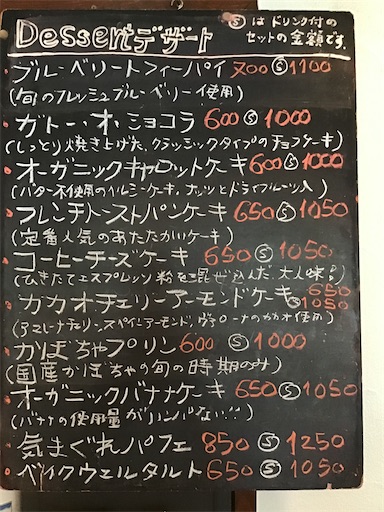 Dessert デザート
Ⓢ は ドリンク付の
セットの金額です。
ブルーベリートフィーパイ 700 Ⓢ 1100
(旬のフレッシュブルーベリー使用)
ガトー・オ・ショコラ 600 Ⓢ 1000
(しっとり焼き上げた、クラッシックタイプのチョコケーキ)
オーガニックキャロットケーキ 600 Ⓢ 1000
(バター不使用のヘルシーケーキ。ナッツとドライフルーツ入)
フレンチトーストパンケーキ 650 Ⓢ 1050
(定番人気のあたたかいケーキ)
コーヒーチーズケーキ 650 Ⓢ 1050
(ひきたてエスプレッソ粉を混ぜ込んだ、大人味!)
カカオ・チェリーアーモンドケーキ 650 Ⓢ 1050
(アマレーナチェリー、スペインアーモンド、ヴァローナのカカオ使用)
かぼちゃプリン 600 Ⓢ 1000
(国産かぼちゃの旬の時期のみ)
オーガニックバナナケーキ 650 Ⓢ 1050
(バナナの使用量がハンパない!!)
気まぐれパフェ 850 Ⓢ 1250
ベイクウェルタルト 650 Ⓢ 1050